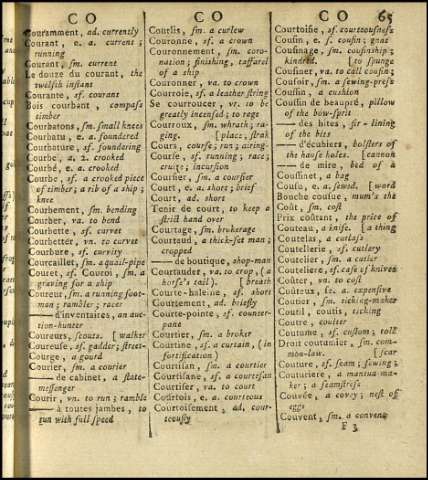 CO
CO
CO 65
Couramment, ad. currently
Courant, e. a. current;
running
Courant, sm. current
Le douze du courant, the
twelfth instant
Courante, sf. courant
Bois courbant, compass
timber
Courbatons, sm. small knees
Courbatu, e. a. foundered
Courbature, sf. foundering
Courbe, a. 2. crooked
Courbé, e. a. crooked
Courbe, sf. a crooked piece
of timber; a rib of a ship;
knee
Courbement, sm. bending
Courber, va. to bend
Courbette, sf. curvet
Courbetter, vn. to curvet
Courbure, sf. curvity
Courcaillet, sm. a quail-pipe
Couret, sf. Couroi, sm. a
graving for a ship
Coureur, sm. a running foot-
man; rambler; rover
—— d'inventaires, an auc-
tion-hunter
Coureurs, scouts. [walker
Coureuse, sf. gadder; street-
Courge, a gourd
Courier, sm. a courier
—— de cabinet, a state-
messenger
Courir, vn. to run; ramble
—— à toutes jambes, to
run with full speed
Courlis, sm. a curlew
Couronne, sf. a crown
Couronnement, sm. coro-
nation; finishing, tafferel
of a ship
Couronner, va. to crown
Courroie, sf. a leather string
Se courroucer, vr. to be
greatly incensed; to rage
Courroux, sm. whrath; ra-
ging. [place; strak
Cours, course; run; airing-
Course, sf. running; race;
cruize; incursion
Coursier, sm. a courser
Court, e. a. short; brief
Court, ad. short
Tenir de court, to keep a
strict hand over
Courtage, sm. brokerage
Courtaud, a thick-set man;
cropped
—— de boutique, shop-man
Courtauder, va. to crop, (a
horse's tail). [breath
Courte-haleine, sf. short
Courtement, ad. briefly
Courte-pointe, sf. counter-
pane
Courtier, a broker
Courtine, sf. a curtain, (in
fortification)
Courtisan, sm. a courtier
Courtisane, sf. a courtesan
Courtiser, va. to court
Courtois, e. a. courteous
Courtoisement, ad. cour-
teously
Courtoisie, sf. courteousness
Cousin, e. s. cousin; gnat
Cousinage, sm. cousinship;
kindred. [to spunge
Cousiner, va. to call cousin;
Cousoir, sm. a sewing-press
Coussin, a cushion
Coussin de beaupré, pillow
of the bow-sprit
—— des bites, fir-lining
of the bits
—— d'écubiers, bolsters of
the hause holes. [cannon
—— de mire, bed of a
Coussinet, a bag
Cousu, e. a. sewed. [word
Bouche cousue, mum's the
Coût, sm. cost
Prix coûtant, the price of
Couteau, a knife. [a thing
Coutelas, a cutlass
Coutellerie, sf. cutlary
Coutelier, sm. a cutler
Couteliere, sf. case of knives
Coûter, va. to cost
Coûteux, se. a. expensive
Coutier, sm. ticking-maker
Coutil, coutis, ticking
Coutre, coulter
Coutume, sf. custom; toll
Droit coutumier, sm. com-
mon-law. [scar
Couture, sf. seam; sewing;
Couturiere, a mantua ma-
ker; a seamstress
Couvée, a covey; nest of
eggs
Couvent, sm. a convent
F 3